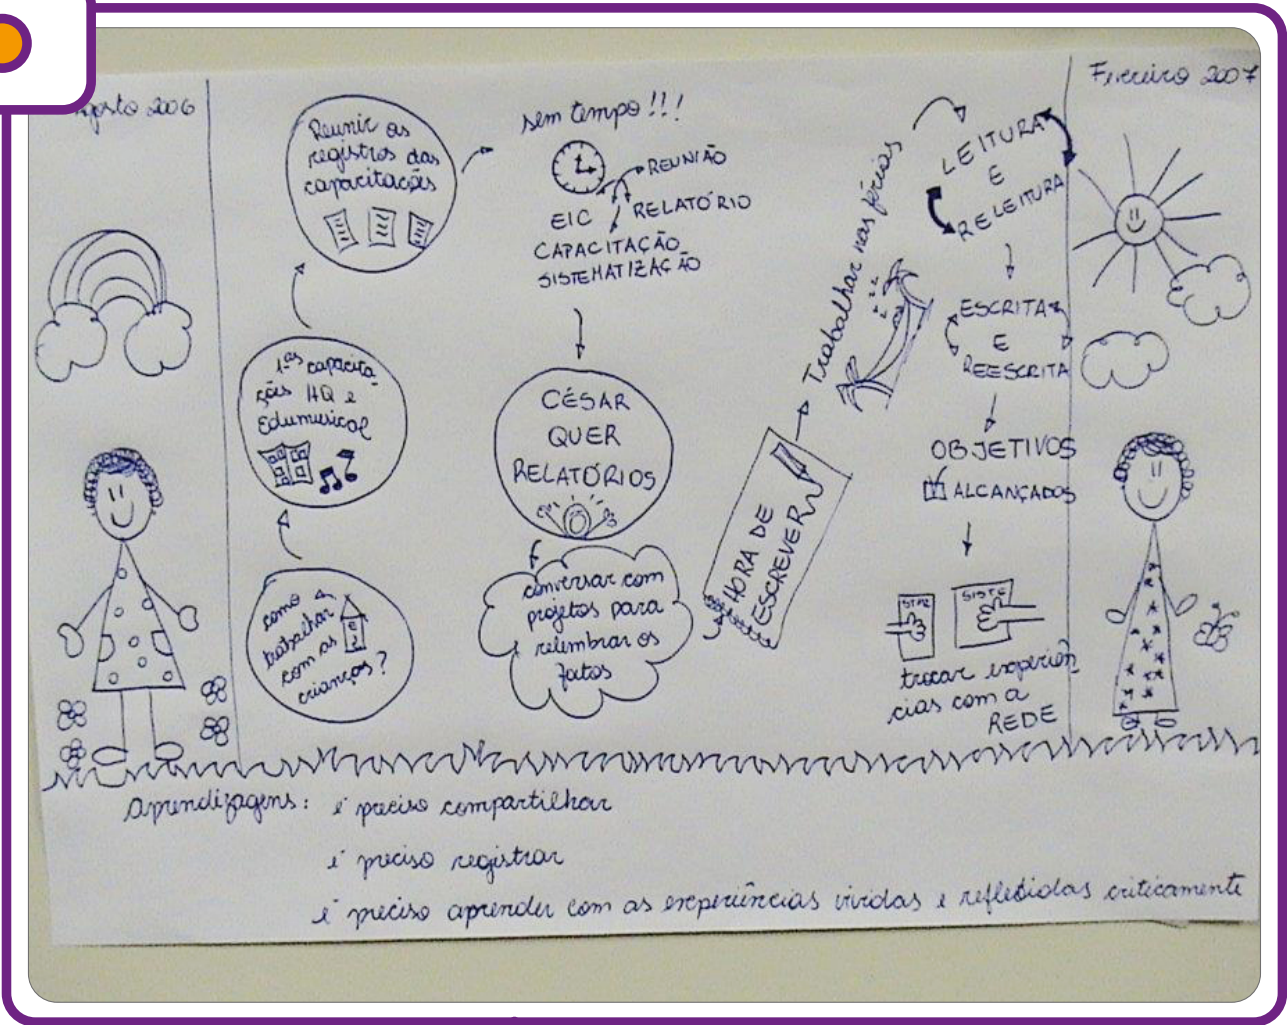 Agosto 2006
Como
trabalhar
com as
crianças?
EI
1ªs capacita-
ções HQ e
Edumusical
Reunir os
registros das
capacitações
sem tempo!!!
REUNIÃO
RELATÓRIO
EIC
CAPACITAÇÃO
SISTEMATIZAÇÃO
CÉSAR
QUER
RELATÓRIOS
conversar com
projetos para
relembrar os
fatos
HORA DE
ESCREVER
Trabalhar nas férias
LEITURA
E
RELEITURA
ESCRITA
E
REESCRITA
OBJETIVOS
ALCANÇADOS
SISTE
trocar experiên
cias com a
REDE
Fevereiro 2007
Aprendizagens: é preciso compartilhar
é preciso registrar
é preciso aprender com as experiências vividas e refletidas criticamente